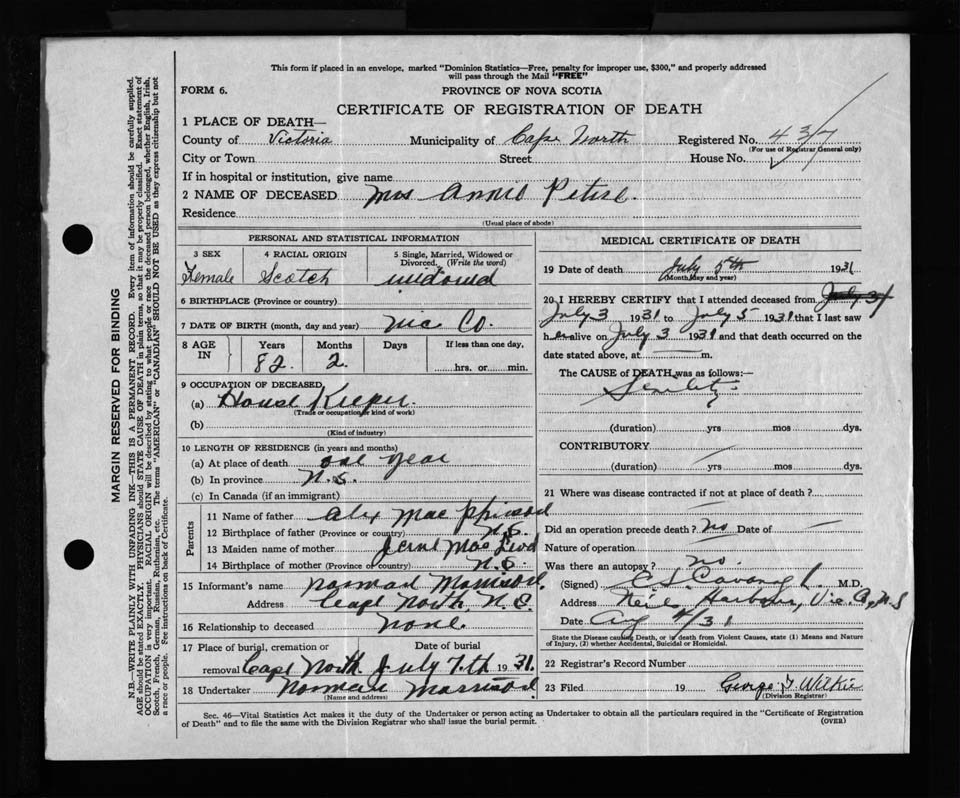 This form if placed in an envelope, marked "Dominion Statistics—Free, penalty for improper use, $300," and properly addressed
will pass through the Mail "FREE"
FORM 6.
PROVINCE OF NOVA SCOTIA
CERTIFICATE OF REGISTRATION OF DEATH
1 PLACE OF DEATH—
County of Victoria Municipality of Cape North Registered No. 437
(For use of Registrar General only)
City or Town Street House No.
If in hospital or institution, give name
2 NAME OF DECEASED Mrs Annie
Residence
(Usual place of abode)
PERSONAL AND STATISTICAL INFORMATION
3 SEX 4 RACIAL ORIGIN 5 Single, Married, Widowed or Divorced. (Write the word)
Female Scotch widowed
6 BIRTHPLACE (Province or country)
7 DATE OF BIRTH (month, day and year) Vic Co.
8 AGE IN Years Months Days If less than one day,
82 2 hrs. or min.
9 OCCUPATION OF DECEASED
(a) House Keeper
(Trade or occupation or kind of work)
(b)
(Kind of industry)
10 LENGTH OF RESIDENCE (in years and months)
(a) At place of death one year
(b) In province N.S.
(c) In Canada (if an immigrant)
Parents
11 Name of father Alex Mac
12 Birthplace of father (Province or country) N.S.
13 Maiden name of mother Mac Leod
14 Birthplace of mother (Province or country) N.S.
15 Informant's name Norman Morrison
Address Cape North, N.S.
16 Relationship to deceased None
17 Place of burial, cremation or removal Date of burial
Cape North July 7th 1931.
18 Undertaker Norman Morrison
(Name and address)
MEDICAL CERTIFICATE OF DEATH
19 Date of death July 5th 1931
(Month, day and year)
20 I HEREBY CERTIFY that I attended deceased from July 31
July 3 1931 to July 5 1931 that I last saw
her alive on July 3 1931 and that death occurred on the
date stated above, at — m.
The CAUSE of DEATH was as follows:—
Senility
(duration) yrs mos dys.
CONTRIBUTORY
(duration) yrs mos dys.
21 Where was disease contracted if not at place of death?
Did an operation precede death? No Date of —
Nature of operation —
Was there an autopsy? no.
(Signed) M.D.
Address Neil's Harbour, Vic. Co, N.S
Date Aug 4/31
State the Disease causing Death, or in death from Violent Causes, state (1) Means and Nature
of Injury, (2) whether Accidental, Suicidal or Homicidal.
22 Registrar's Record Number
23 Filed 19 George Wilkie
(Division Registrar)
Sec. 46—Vital Statistics Act makes it the duty of the Undertaker or person acting as Undertaker to obtain all the particulars required in the "Certificate of Registration
of Death" and to file the same with the Division Registrar who shall issue the burial permit.
(OVER)
MARGIN RESERVED FOR BINDING
N.B.—WRITE PLAINLY WITH UNFADING INK—THIS IS A PERMANENT RECORD. Every item of information should be carefully supplied.
AGE should be stated EXACTLY. PHYSICIANS should STATE CAUSE OF DEATH in plain terms, so that it may be properly classified. Exact statement of
OCCUPATION is very important. RACIAL ORIGIN will be described by stating to what people or race the deceased person belonged, whether English, Irish,
Scotch, French, German, Russian, Ruthenian, etc. The terms "AMERICAN" or "CANADIAN" SHOULD NOT BE USED as they express citizenship but not
a race or people. Fee instructions on back of Certificate.